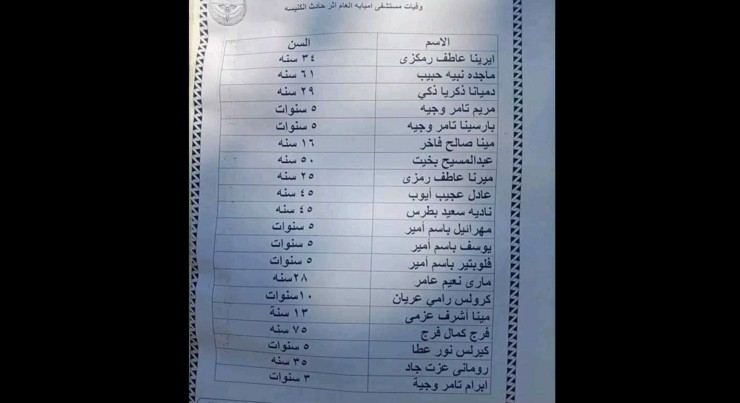 وفيات مستشفى امبابه العام اثر حادث الكنيسه
الاسم السن
ايرينا عاطف رمكزى ٣٤ سنه
ماجده نبيه حبيب ٦١ سنه
دميانا ذكريا ذكي ٢٩ سنه
مريم تامر وجيه ٥ سنوات
بارسينا تامر وجيه ٥ سنوات
مينا صالح فاخر ١٦ سنه
عبدالمسيح بخيت ٥٠ سنه
ميرنا عاطف رمزى ٢٥ سنه
عادل عجيب أيوب ٤٥ سنه
ناديه سعيد بطرس ٤٥ سنه
مهرائيل باسم أمير ٥ سنوات
يوسف باسم أمير ٥ سنوات
فلوبتير باسم أمير ٥ سنوات
مارى نعيم عامر ٢٨سنه
كرولس رامي عريان ١٠سنوات
مينا أشرف عزمى ١٣ سنة
فرج كمال فرج ٧٥ سنه
كيرلس نور عطا ٥ سنوات
رومانى عزت جاد ٣٥ سنه
ابرام تامر وجية ٣ سنوات